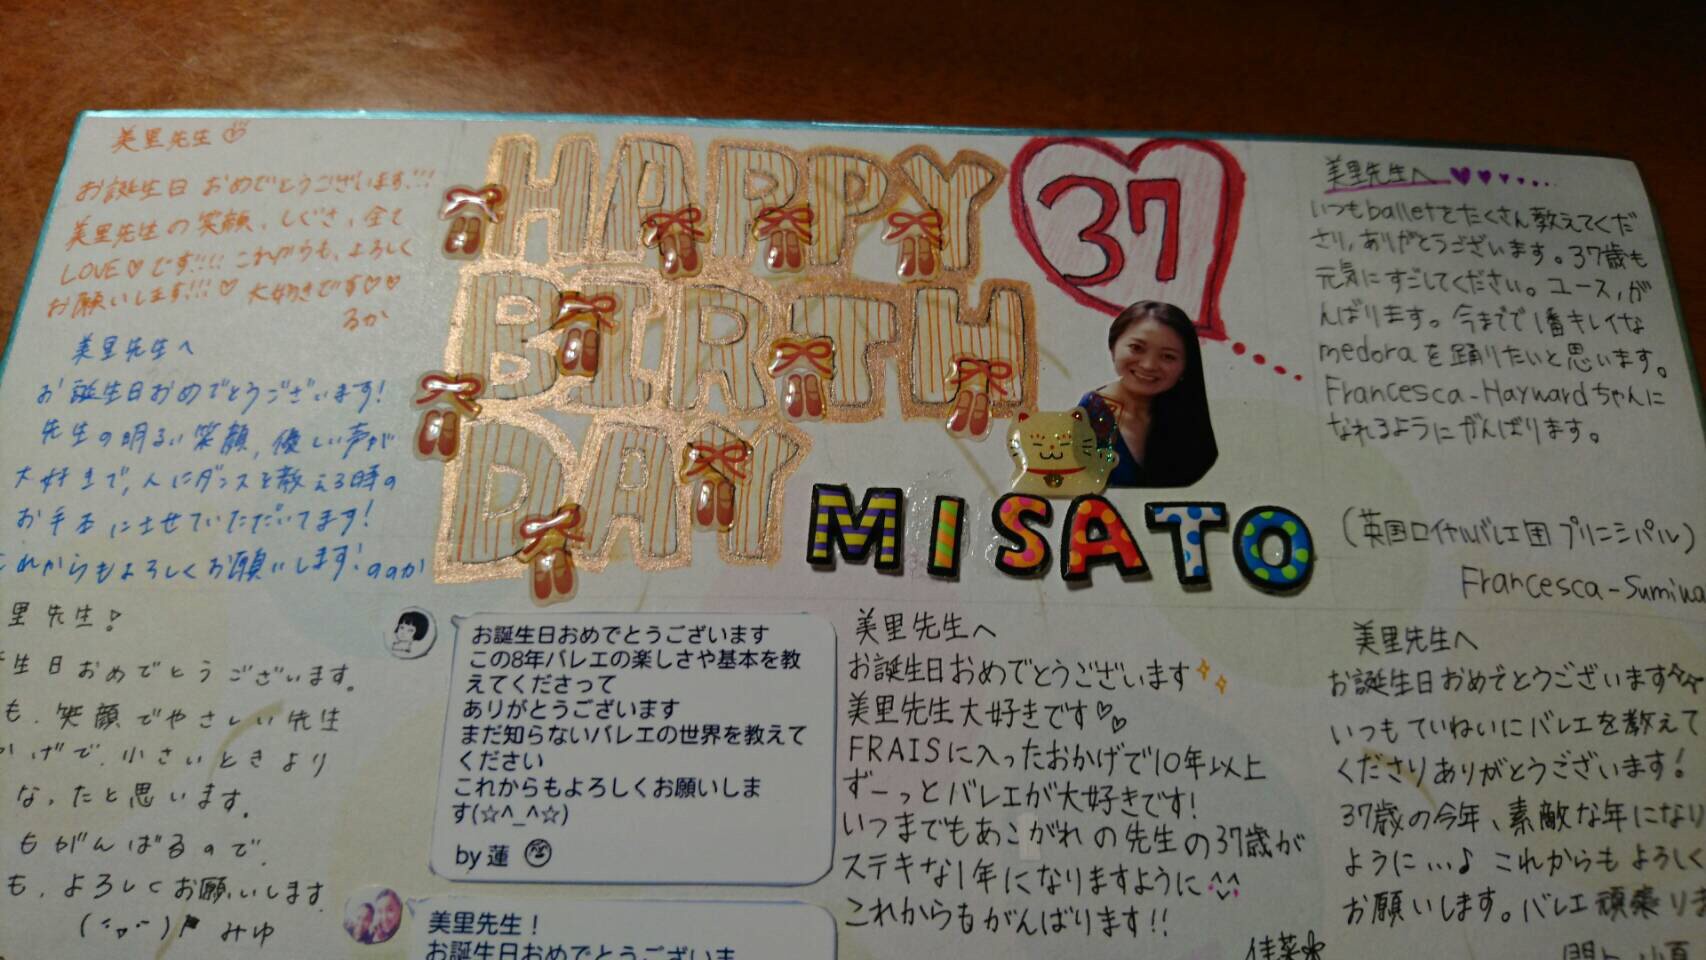 美里先生♡
お誕生日 おめでとうございます!!!
美里先生の笑顔、しぐさ、全て
LOVE♡です!!!! これからも、よろしく
お願いします!!!♡ 大好きです♡♡
るか
美里先生へ
お誕生日おめでとうございます!
先生の明るい笑顔、優しい声が
大好きで、人にダンスを教える時の
お手本にさせていただいてます!
これからもよろしくお願いします! ののか
里先生!
生日おめでとうございます。
も、笑顔でやさしい先生
かげで、小さいときより
なったと思います。
もがんばるので、
も、よろしくお願いします。
みゆ
HAPPY
BIRTH
DAY
37
MISATO
美里先生へ♥♥
いつもballetをたくさん教えてくだ
さり、ありがとうございます。37歳も
元気にすごしてください。ユース、が
んばります。今までで1番キレイな
medoraを踊りたいと思います。
Francesca-Haywardちゃんに
なれるようにがんばります。
(英国ロイヤルバレエ団 プリンシパル)
Francesca-Sumi
お誕生日おめでとうございます
この8年バレエの楽しさや基本を教
えてくださって
ありがとうございます
まだ知らないバレエの世界を教えて
ください
これからもよろしくお願いしま
す(☆^_^☆)
by 蓮
美里先生!
お誕生日おめでとうございま
美里先生へ
お誕生日おめでとうございます
美里先生大好きです♡♡
FRAISに入ったおかげで10年以上
ずーっとバレエが大好きです!
いつまでもあこがれの先生の37歳が
ステキな1年になりますように^^
これからもがんばります!!
佳菜
美里先生へ
お誕生日おめでとうございます
いつもていねいにバレエを教えて
くださりありがとうございます!
37歳の今年、素敵な年になり
ように…♪ これからもよろしく
お願いします。バレエ頑張りま